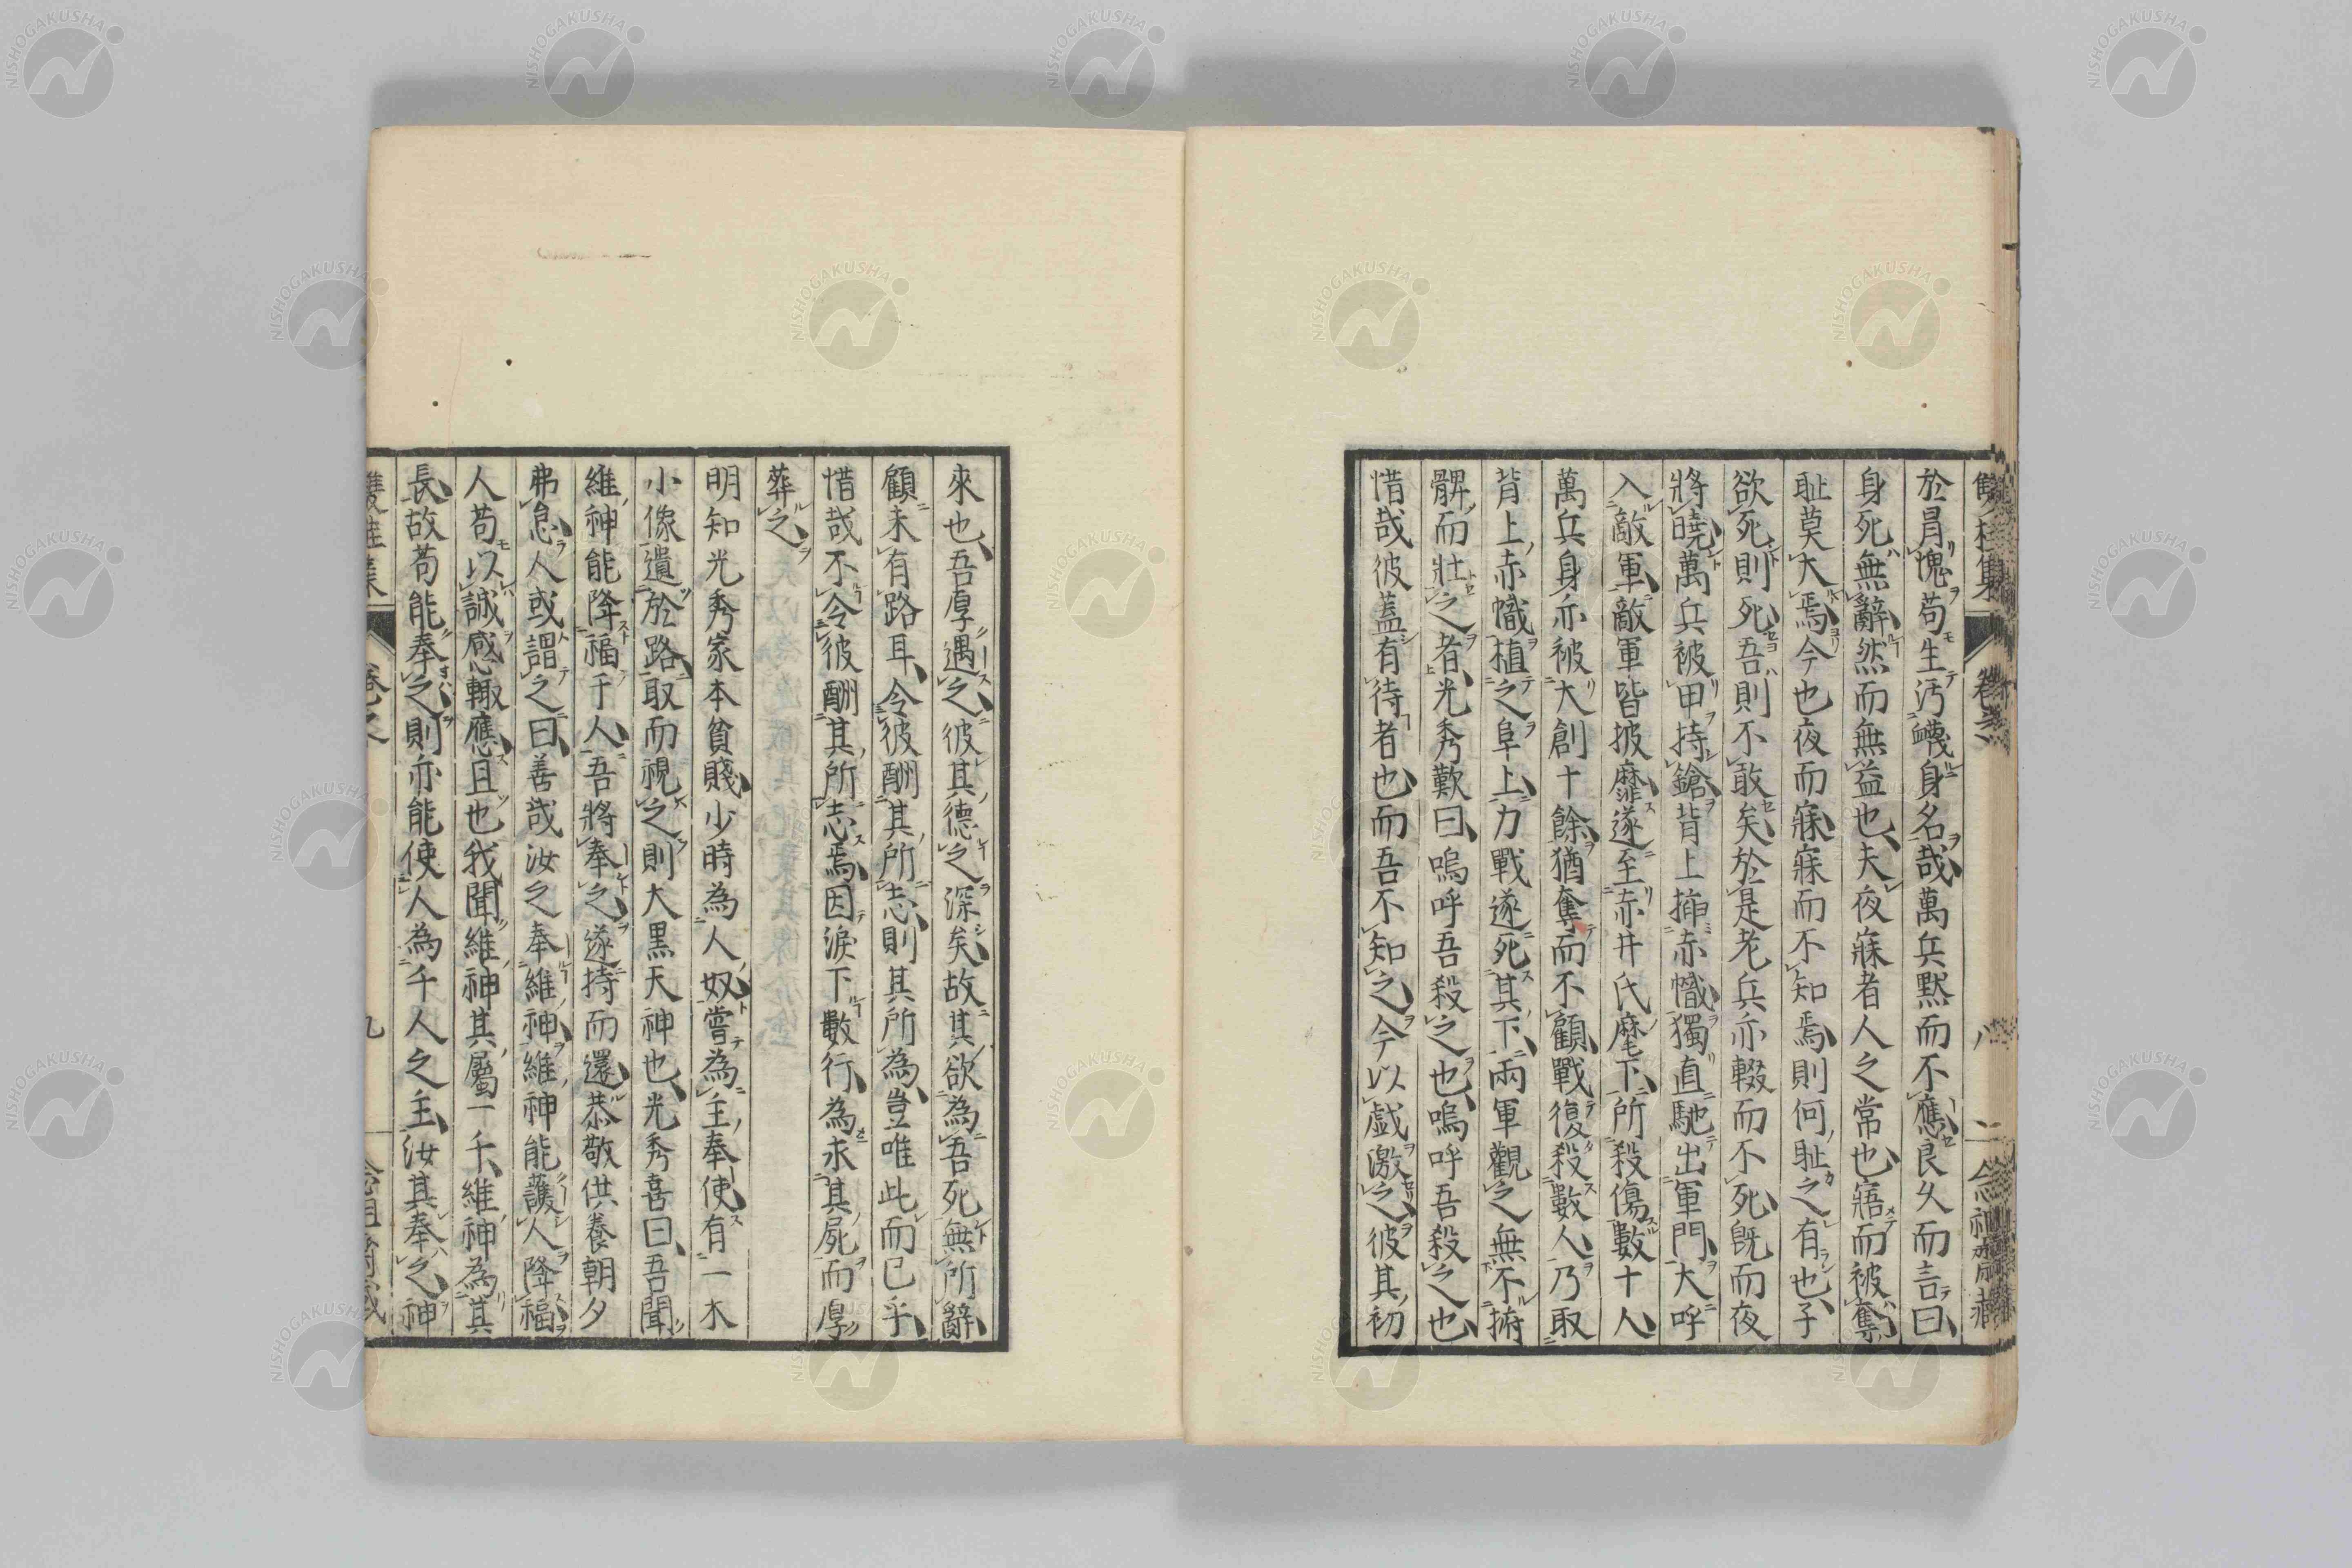 於胷愧苟生汚衊身名哉萬兵黙而不應良久而言曰
身死無辭然而無益也夫夜寐者人之常也寤而被奪
耻莫大焉今也夜而寐寐而不知焉則何耻之有也子
欲死則死吾則不敢矣於是老兵亦輟而不死既而夜
將曉萬兵被甲持鎗背上揷赤幟獨直馳出軍門大呼
入敵軍敵軍皆披靡遂至赤井氏麾下所殺傷數十人
萬兵身亦被大創十餘猶奮而不顧戰復殺數人乃取
背上赤幟植之阜上力戰遂死其下兩軍觀之無不捬
髀而壯之者光秀歎曰嗚呼吾殺之也嗚呼吾殺之也
惜哉彼蓋有待者也而吾不知之今以戯激之彼其初
來也吾厚遇之彼其德之深矣故其欲為吾死無所辭
顧未有路耳令彼酬其所志則其所為豈唯此而已乎
惜哉不令彼酬其所志焉因淚下數行為求其屍而厚
葬之
明知光秀家本貧賤少時為人奴嘗為主奉使有一木
小像遺於路取而視之則大黒天神也光秀喜曰吾聞
維神能降福千人吾將奉之遂持而還恭敬供養朝夕
弗怠人或謂之曰善哉汝之奉維神維神能護人降福
人苟以誠感輙應且也我聞維神其屬一千維神為其
長故苟能奉之則亦能使人為千人之主汝其奉之神
九
NISHOGAKUSHA